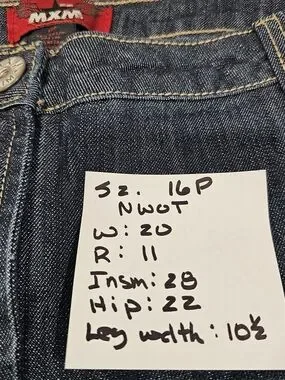 MXM
Sz. 16P
NWOT
W: 20
R: 11
Insm: 28
Hip: 22
Leg width: 10½